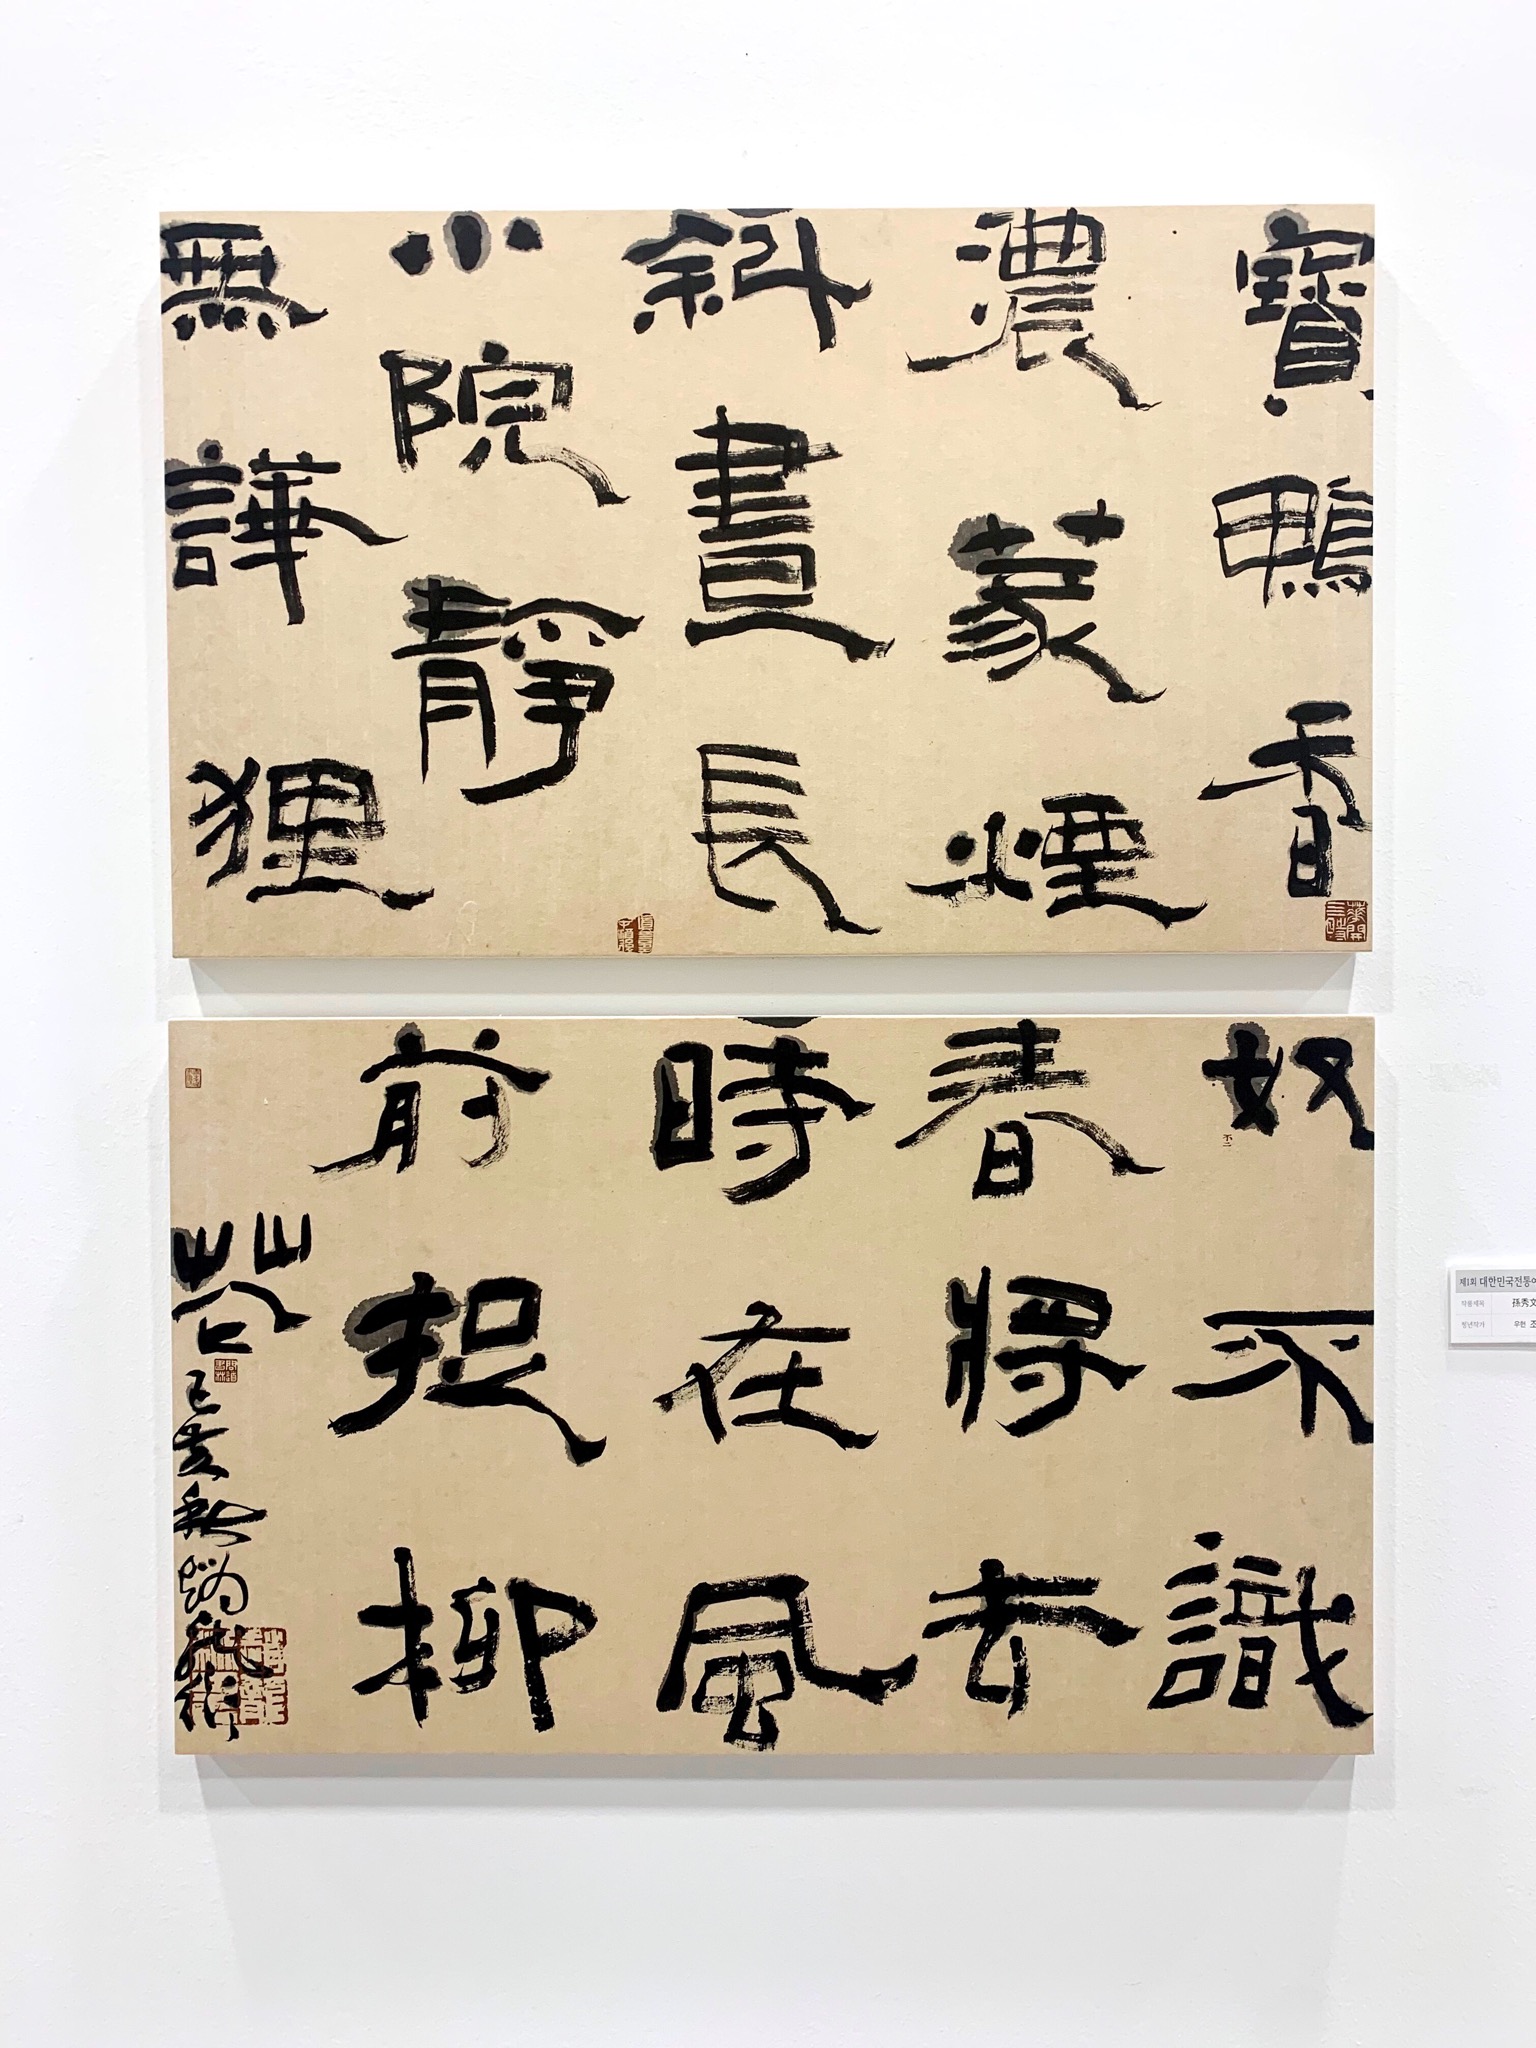 寶鴨香
濃篆煙
斜晝長
小院靜
無譁狸
奴不識
春將去
時在風
前捉柳
花
己亥秋
不二
제1회 대한민국전통
작품제목 孫秀文
청년작가 우헌